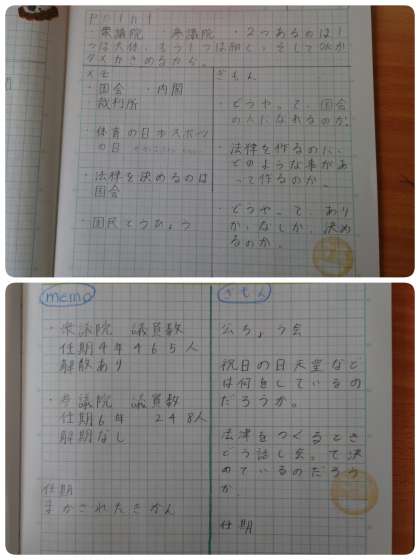 Point
・衆議院 ・参議院 ・2つあるのは1
つは大体、もう1つは細く、そして
めるから。
メモ
・国会 ・内閣
裁判所
・体育の日がスポーツ
の日
・法律を決めるのは
国会
・国民とうひょう
ぎもん
・どうやって、国会
の人になれるのか。
・法律を作るのに、
どのような事があ
って作るのか。
・どうやって、あり
か、なしか、決め
るのか。
memo
・衆議院 議員数
任期4年 465人
解散あり
・参議院 議員数
任期6年 248人
解期なし
任期
まかされたきかん
ぎもん
公ちょう会
祝日の日天皇など
は何をしているの
だろうか。
法律をつくるとき
どう話し会って決
めているのだろう
か
任期